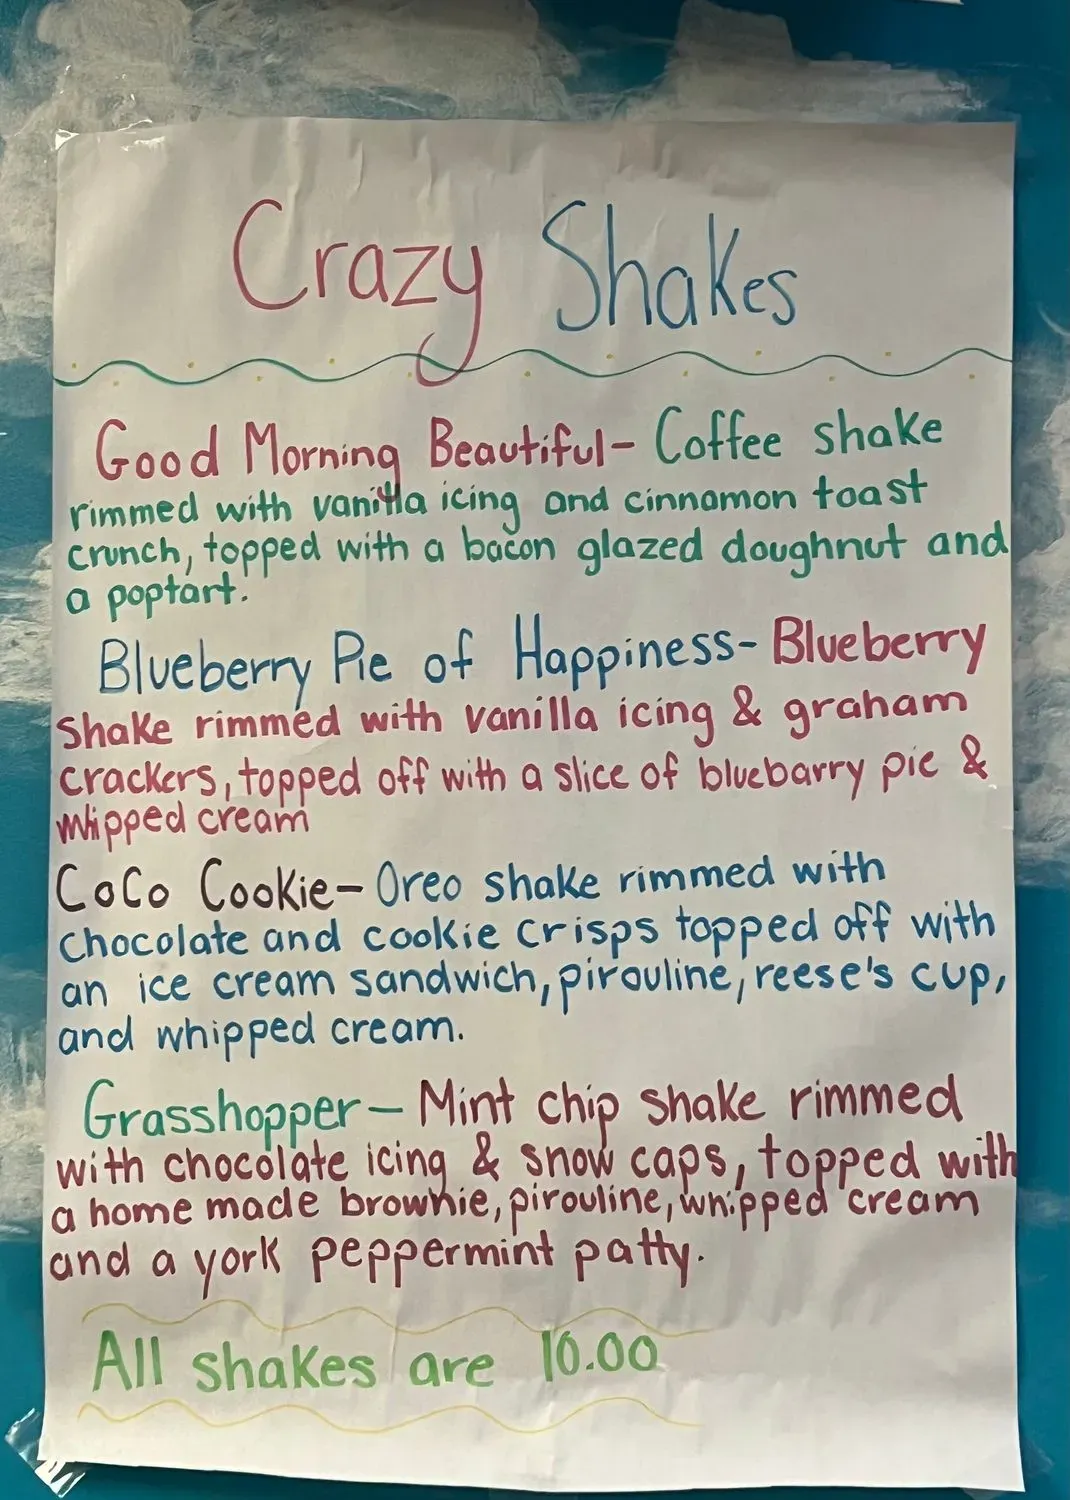 Crazy Shakes
Good Morning Beautiful- Coffee shake
rimmed with vanilla icing and cinnamon toast
crunch, topped with a bacon glazed doughnut and
a poptart.
Blueberry Pie of Happiness- Blueberry
shake rimmed with vanilla icing & graham
crackers, topped off with a slice of bluebarry pie &
whipped cream
CoCo Cookie- Oreo shake rimmed with
chocolate and cookie crisps topped off with
an ice cream sandwich, pirouline, reese's cup,
and whipped cream.
Grasshopper- Mint chip shake rimmed
with chocolate icing & snow caps, topped with
a home made brownie, pirouline, whipped cream
and a york peppermint patty.
All shakes are 10.00